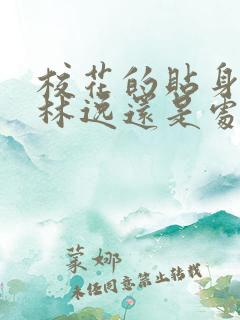 校花的貼身
林逸還是處
菓娜
未经同意禁止转载